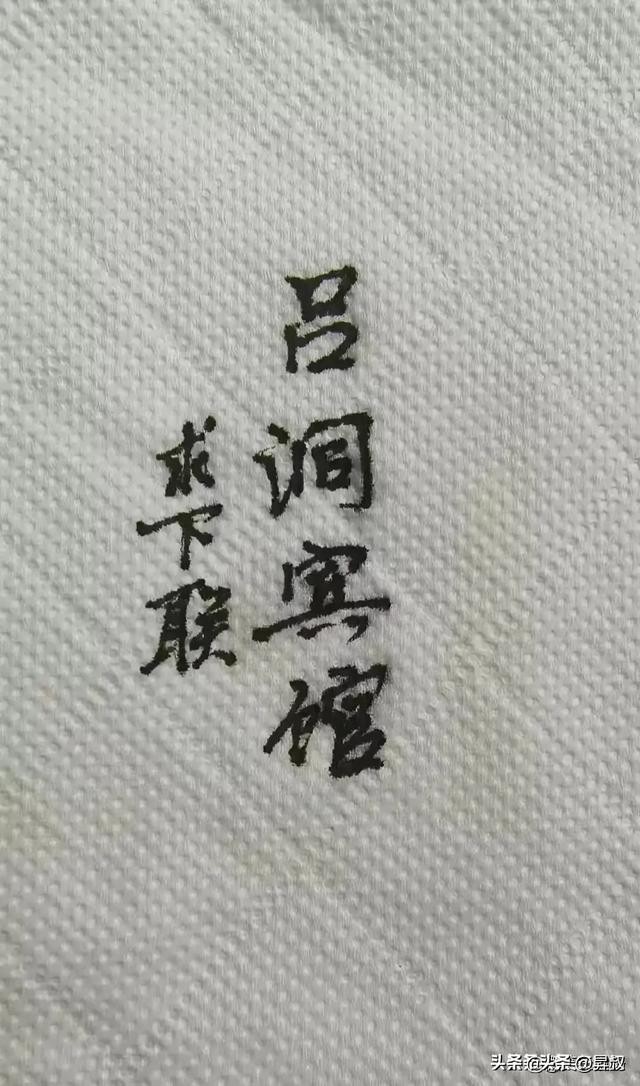 吕洞宾馆
求下联
头条@头条@昙叔